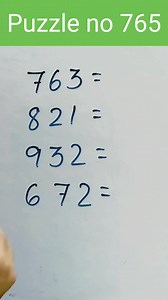 Puzzle no 765
763=
821=
932=
672=